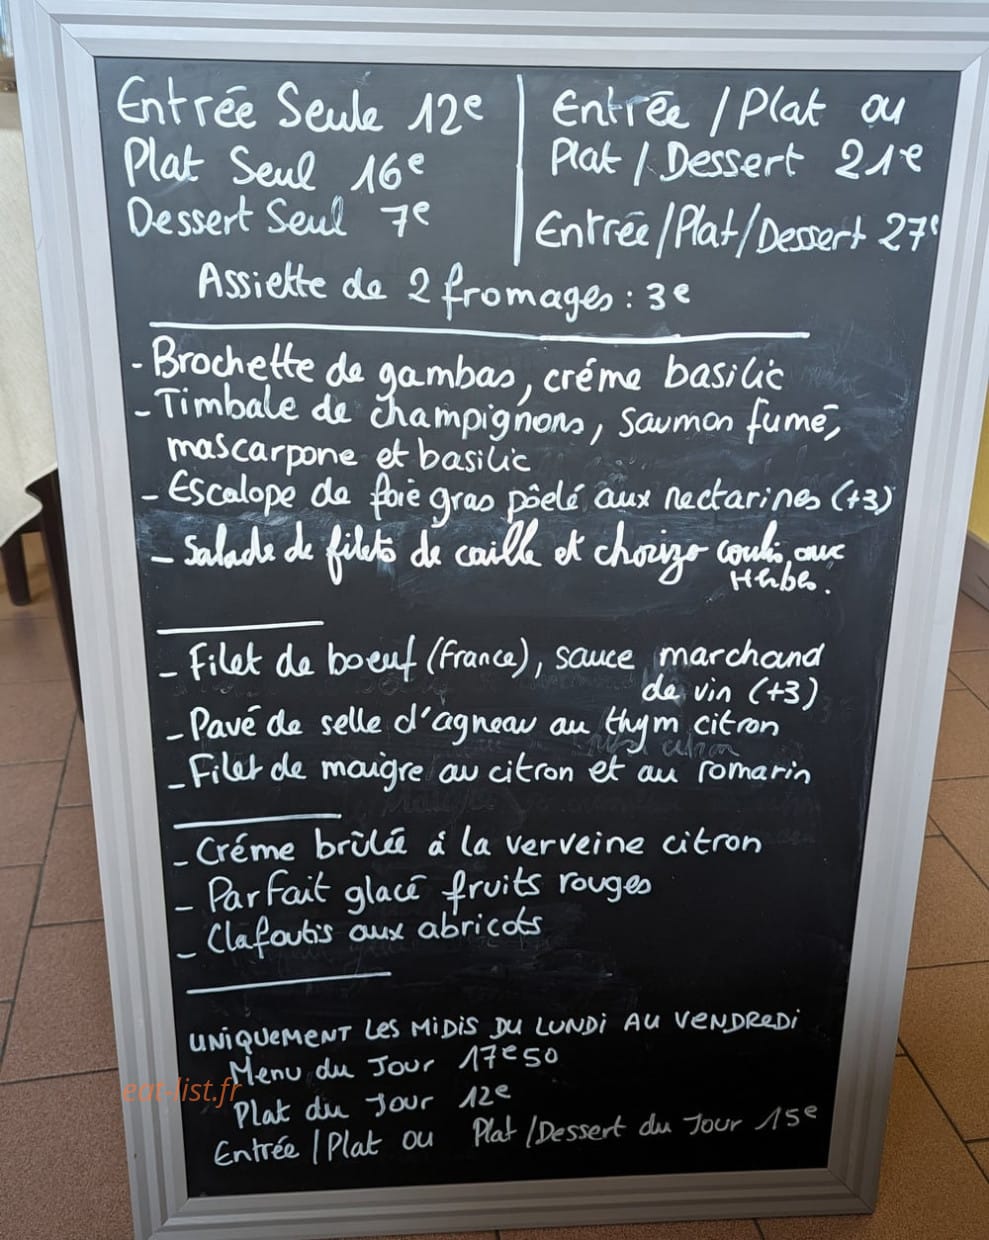 Entrée Seule 12e
Plat Seul 16e
Dessert Seul 7e
Entrée / Plat ou
Plat / Dessert 21e
Entrée/Plat/Dessert 27e
Assiette de 2 fromages : 3e
- Brochette de gambas, créme basilic
- Timbale de champignons, saumon fumé,
mascarpone et basilic
- Escalope de foie gras pôelé aux nectarines (+3)
- Salade de filets de caille et chorizo coulis aux
Herbes.
- Filet de boeuf (France), sauce marchand
de vin (+3)
- Pavé de selle d'agneau au thym citron
- Filet de maigre au citron et au romarin
- Créme brûlée á la verveine citron
- Parfait glacé fruits rouges
- Clafoutis aux abricots
UNIQUEMENT LES MIDIS DU LUNDI AU VENDREDI
Menu du Jour 17e50
Plat du Jour 12e
Entrée / Plat ou Plat / Dessert du Jour 15e
eat-list.fr